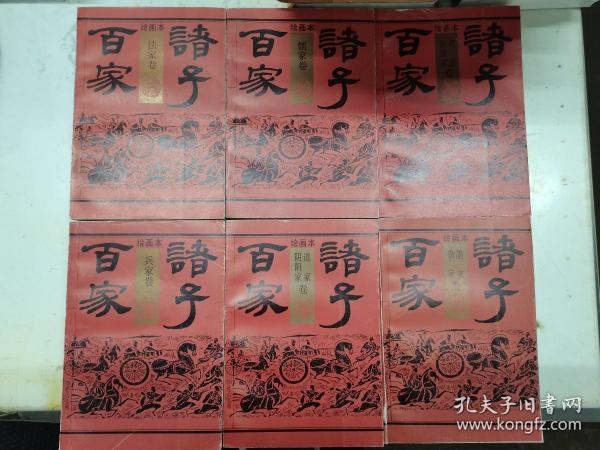 諸子百家
绘画本
法家卷
諸子百家
绘画本
儒家卷
諸子百家
绘画本
諸子百家
绘画本
兵家卷
諸子百家
绘画本
道家
阴阳家卷
諸子百家
绘画本
孔夫子旧书网
www.kongfz.com